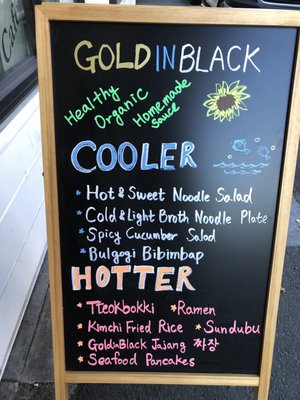 GOLD IN BLACK
Healthy
Organic
Homemade
Sauce
COOLER
* Hot & Sweet Noodle Salad
* Cold & Light Broth Noodle Plate
* Spicy Cucumber Salad
* Bulgogi Bibimbap
HOTTER
* Tteokbokki * Ramen
* Kimchi Fried Rice * Sundubu
* GoldinBlack Jajang 짜장
* Seafood Pancakes